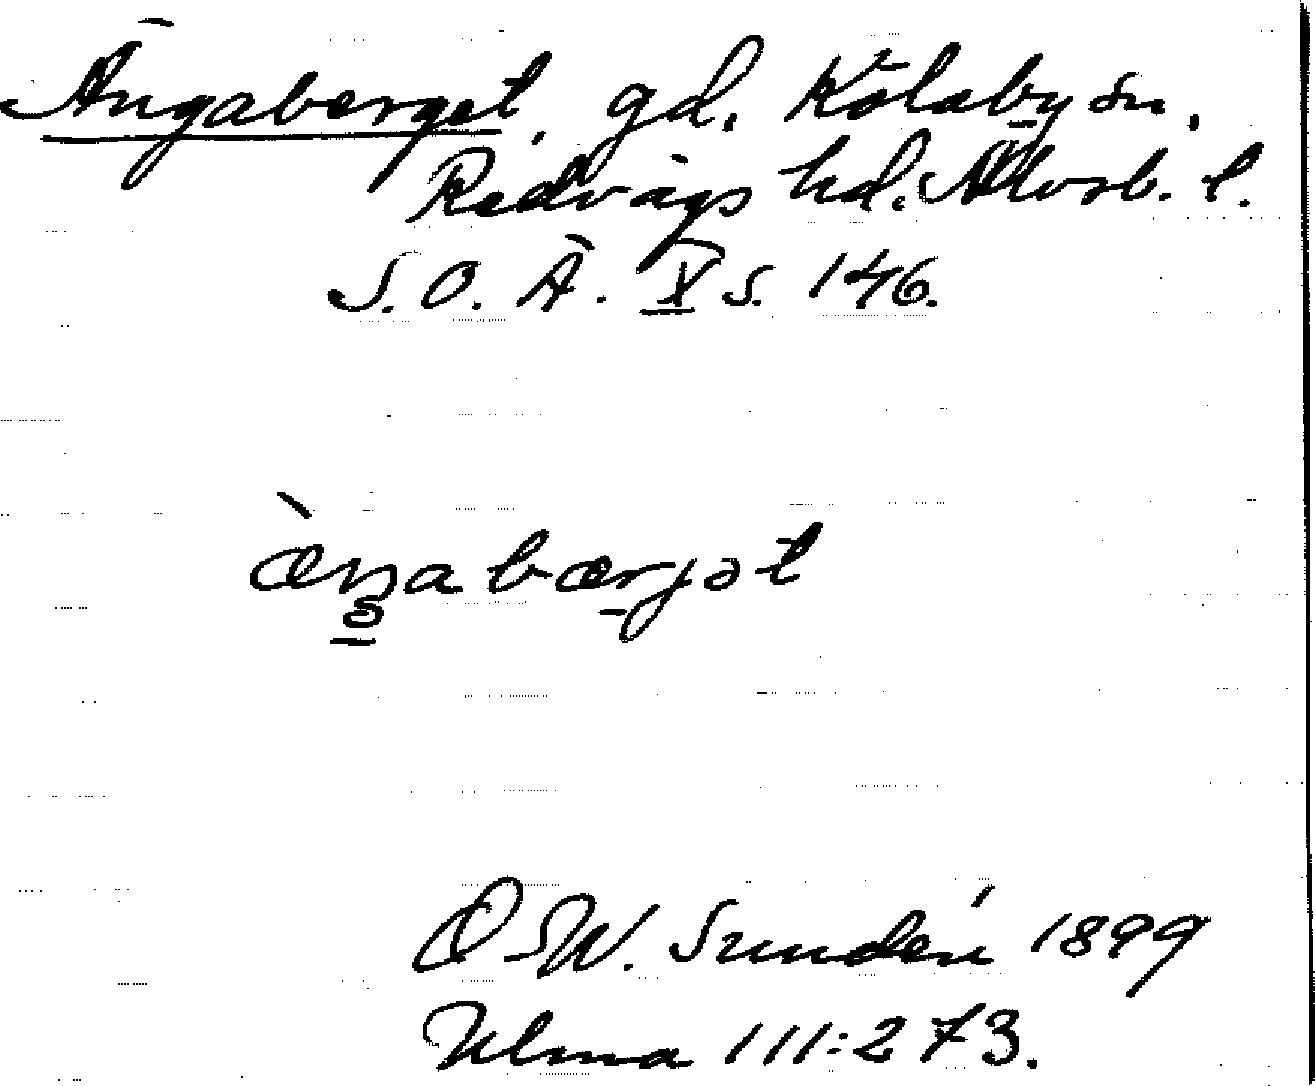 Ängaberget, gd. Kölaby sn.,
Redvägs hd. Älvsb. l.
S. O. Ä. X s. 146.
æ̀ŋabærjət
D. W. Sundén 1899
Ulma 111:273.